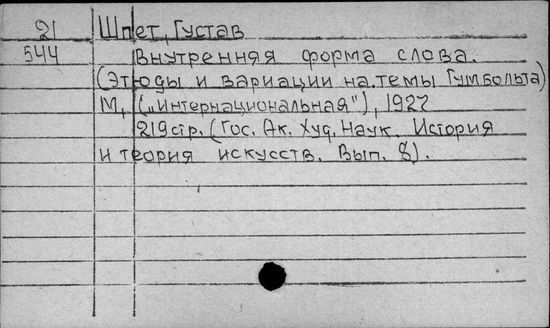 21 Шпет, Густав
544 Внутренняя форма слова.
(Этюды и вариации на темы Гумбольта)
М, („Интернациональная"), 1927
219 стр. (Гос. Ак. Худ. Наук. История
и теория искусств. Вып. 8).